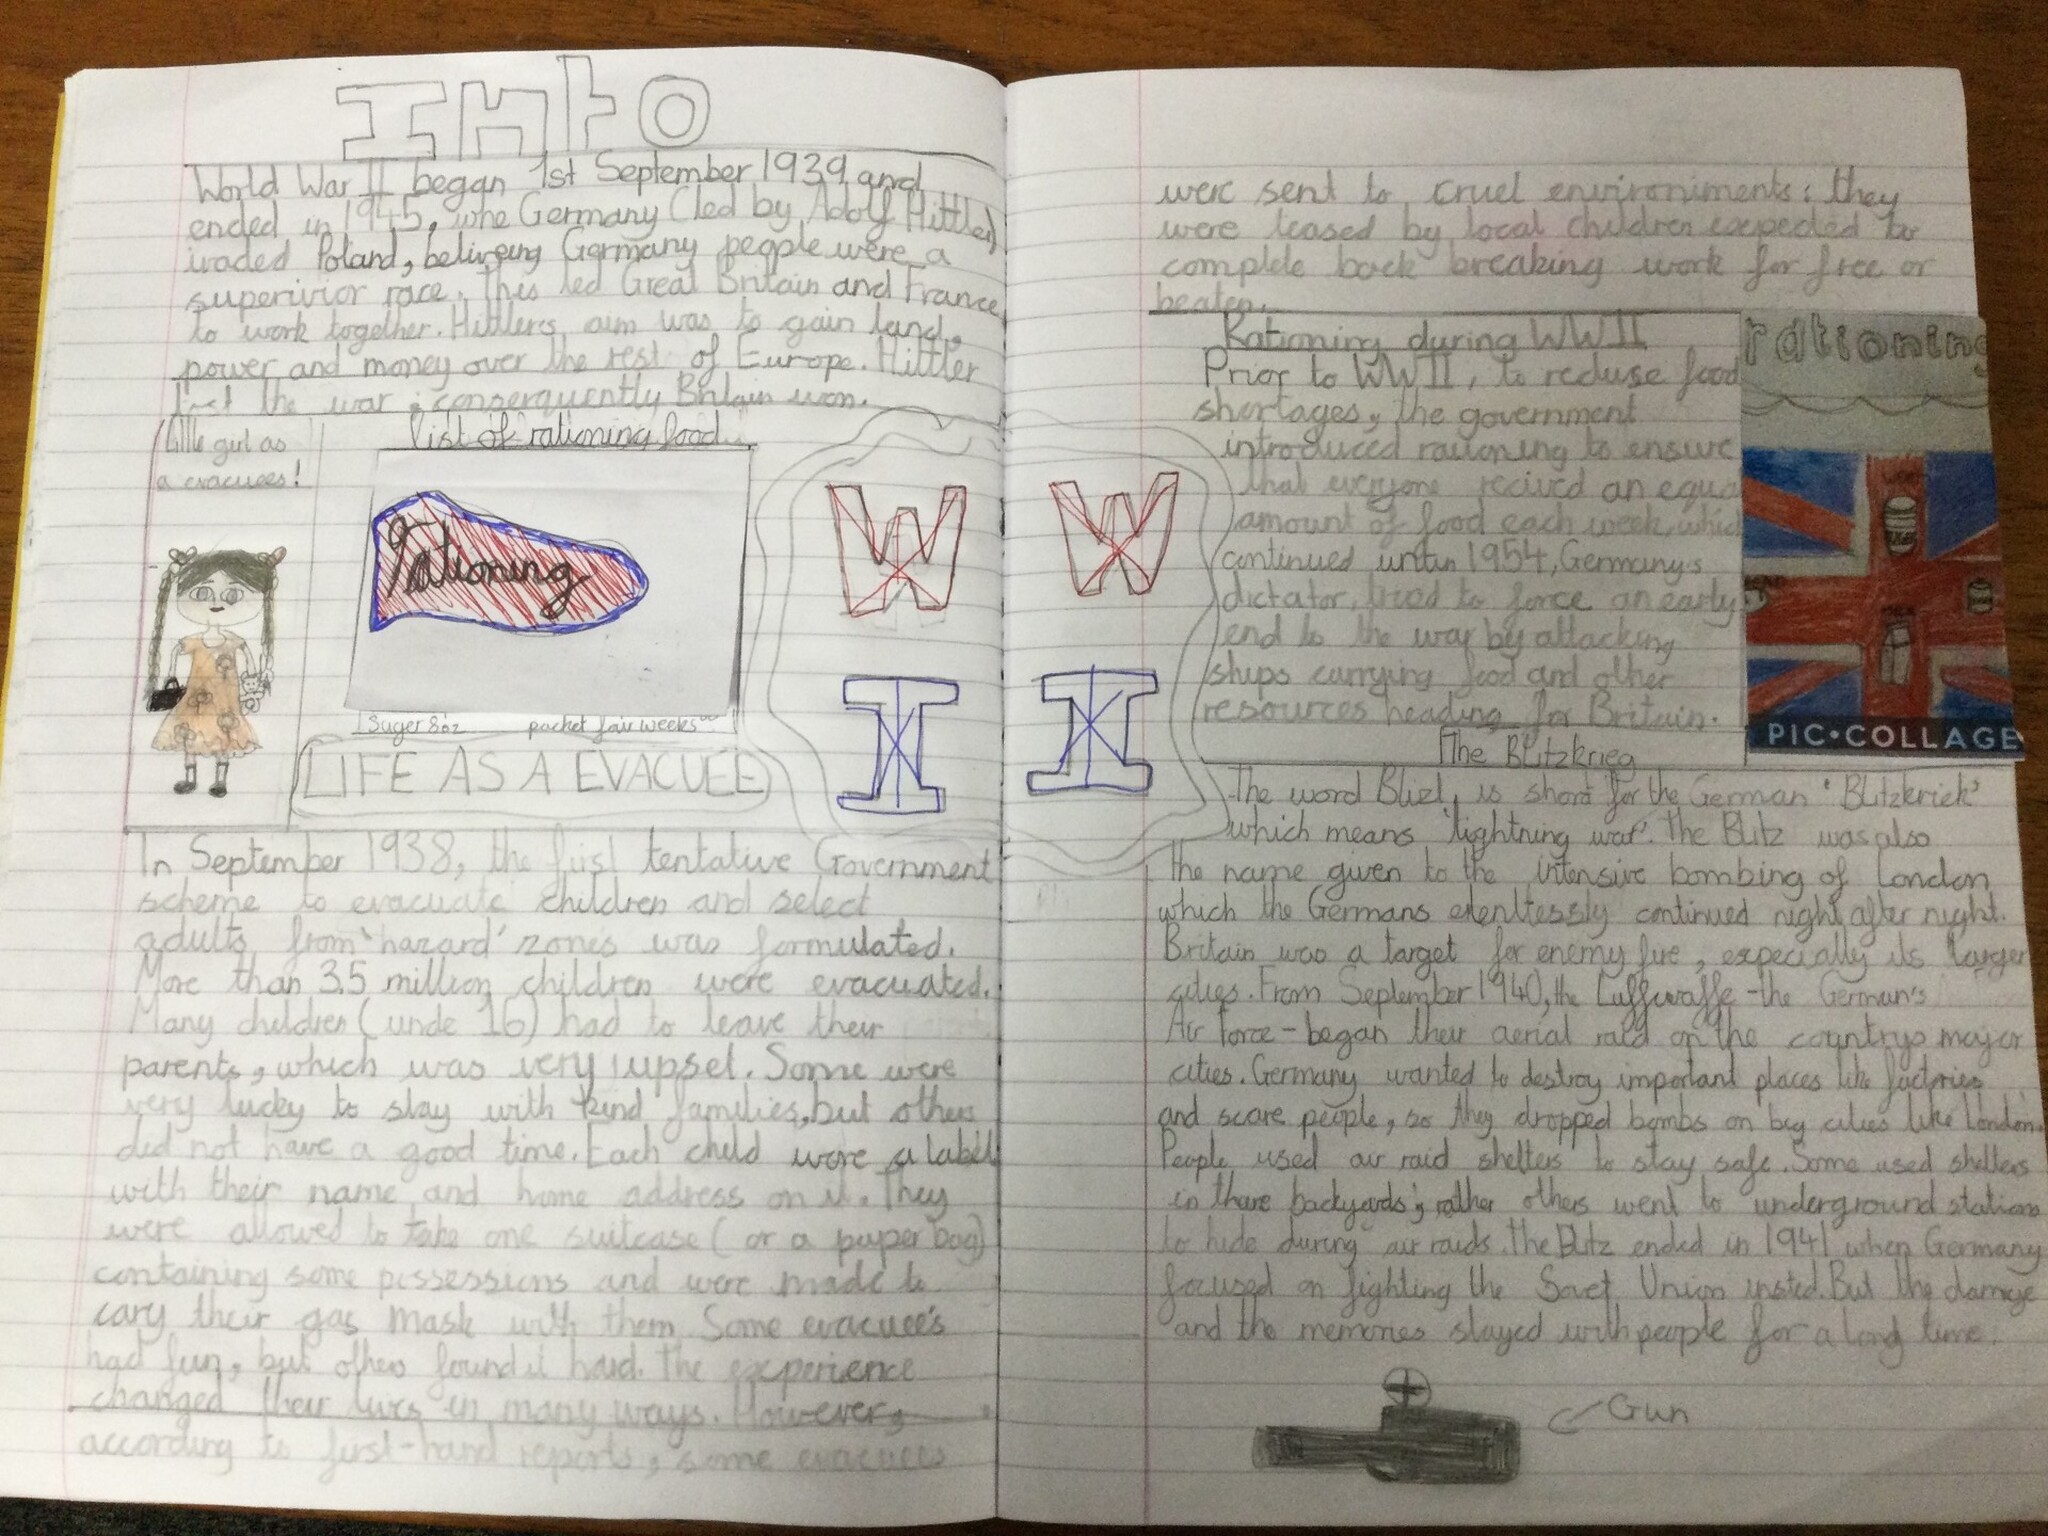 Into
World War II began 1st September 1939 and
ended in 1945, whe Germany (led by Adolf Hittler)
ivaded Poland, beliveing Germany people were a
superivior race. This led Great Britain and France
to work together. Hittlers aim was to gain land,
power and money over the rest of Europe. Hittler
lost the war; conserquently Britain won.
Little girl as
a evacuees!
list of rationing food
rationing
Suger 8oz packet four weeks
LIFE AS A EVACUEE
In September 1938, the first tentative Government
scheme to evacuate children and select
adults from 'hazard' zones was formulated.
More than 3.5 million children were evacuated.
Many children (unde 16) had to leave their
parents, which was very upset. Some were
very lucky to stay with kind families, but others
did not have a good time. Each child wore a label
with their name and home address on it. They
were allowed to take one suitcase (or a paper bag)
containing some possessions and were made to
cary their gas mask with them Some evacuee's
had fun, but others found it hard. The experience
changed their lives in many ways. However,
according to first-hand reports, some evacuees
WW
II
were sent to cruel environiments: they
were teased by local children expected to
complete back breaking work for free or
beaten.
Rationing during WWII
Prior to WWII, to reduse food
shortages, the government
introduced rationing to ensure
that everyone recived an equal
amount of food each week, which
continued untill 1954, Germany's
dictator, tried to force an early
end to the war by attacking
ships carrying food and other
resources heading for Britain.
rationing
PIC•COLLAGE
The Blitzkrieg
The word Blizt, is short for the German 'Blitzkriek'
which means 'lightning war'. The Blitz was also
the name given to the intensive bombing of London
which the Germans elentlessly continued night after night.
Britain was a target for enemy fire, especially its larger
cities. From September 1940, the Luffwaffe - the German's
Air Force - began their aerial raid on the countrys major
cities. Germany wanted to destroy important places like factories
and scare people, so they dropped bombs on big cities like London.
People used air raid shelters to stay safe. Some used shelters
in there backyards; rather others went to underground stations
to hide during air raids. The Blitz ended in 1941 when Germany
focused on fighting the Soviet Union insted. But the damage
and the memories stayed with people for a long time.
Gun